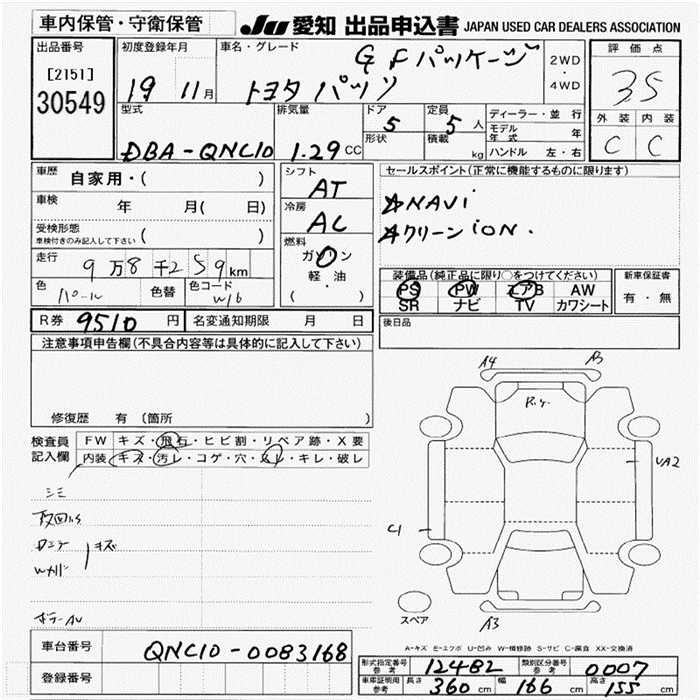 車内保管・守衛保管
JU 愛知 出品申込書 JAPAN USED CAR DEALERS ASSOCIATION
出品番号
[2151]
30549
初度登録年月
19 11月
車名・グレード
GFパッケージ
トヨタ パッソ
2WD
・
4WD
評価点
3.5
外装 内装
C C
型式
DBA-QNC10
排気量
1.29 CC
ドア
5
形状
定員
5 人
積載
kg
ディーラー・並行
モデル年式 年
ハンドル 左・右
車歴
自家用・( )
車検
年 月( 日)
受検形態
車検付きのみ記入して下さい ( )
走行
9万8千259km
色
パール
色替
色コード
W16
シフト
AT
冷房
AC
燃料
ガソリン
軽・油
( ・ )
セールスポイント(正常に機能するものに限ります)
☆NAVi
☆クリーンiON.
装備品(純正品に限り○をつけてください)
PS PW エアB AW
SR ナビ TV カワシート
新車保証書
有・無
R券 9510 円
名変通知期限 月 日
後日品
注意事項申告欄(不具合内容等は具体的に記入して下さい)
修復歴 有 〔箇所 〕
検査員
記入欄
FW キズ・飛石・ヒビ割・リペア跡・X要
内装 キズ・汚レ・コゲ・穴・スレ・キレ・破レ
シミ
キズ
A4
A3
R.g.
UA2
C1
A3
スペア
A-キズ E-エクボ U-凹み W-補修跡 S-サビ C-腐食 XX-交換済
車台番号
QNC10-0083168
登録番号
形式指定番号
参考
12482
類別区分番号
参考
0007
車庫証明用
参考
長さ 360 cm 幅 166 cm 高さ 155 cm